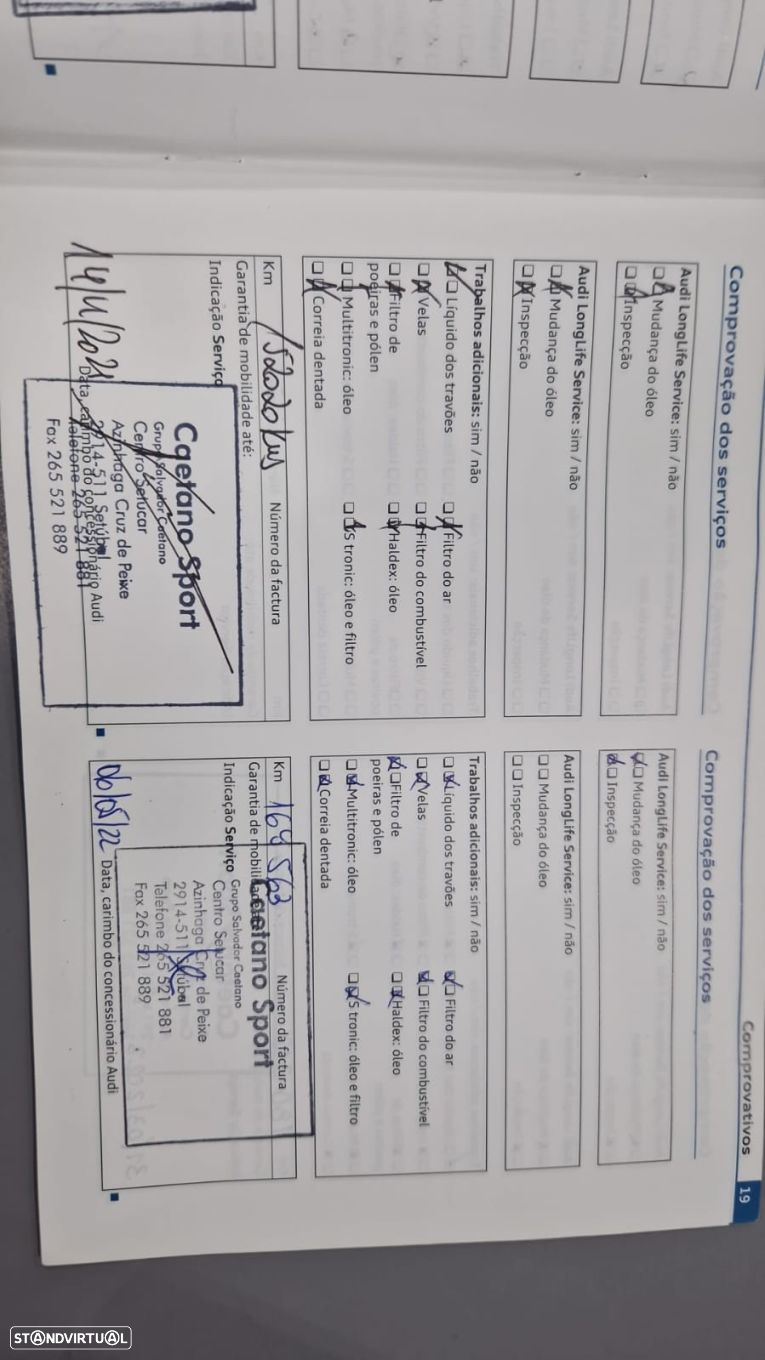 Comprovativos
19
Comprovação dos serviços
Audi LongLife Service: sim / não
Mudança do óleo
Inspecção
Audi LongLife Service: sim / não
Mudança do óleo
Inspecção
Trabalhos adicionais: sim / não
Líquido dos travões Filtro do ar
Velas Filtro do combustível
Filtro de Haldex: óleo
poeiras e pólen
Multitronic: óleo S tronic: óleo e filtro
Correia dentada
Km 152020 kms Número da factura
Garantia de mobilidade até:
Indicação Serviço
Caetano Sport
Grupo Salvador Caetano
Centro Setucar
Azinhaga Cruz de Peixe
2914-511 Setúbal
Telefone 265 521 881
Fax 265 521 889
Data, carimbo do concessionário Audi
Comprovação dos serviços
Audi LongLife Service: sim / não
Mudança do óleo
Inspecção
Audi LongLife Service: sim / não
Mudança do óleo
Inspecção
Trabalhos adicionais: sim / não
Líquido dos travões Filtro do ar
Velas Filtro do combustível
Filtro de Haldex: óleo
poeiras e pólen
Multitronic: óleo S tronic: óleo e filtro
Correia dentada
Km 168 563 Número da factura
Garantia de mobilidade
Indicação Serviço
Caetano Sport
Grupo Salvador Caetano
Centro Setucar
Azinhaga Cruz de Peixe
2914-511 Setúbal
Telefone 265 521 881
Fax 265 521 889
Data, carimbo do concessionário Audi
STANDVIRTUAL